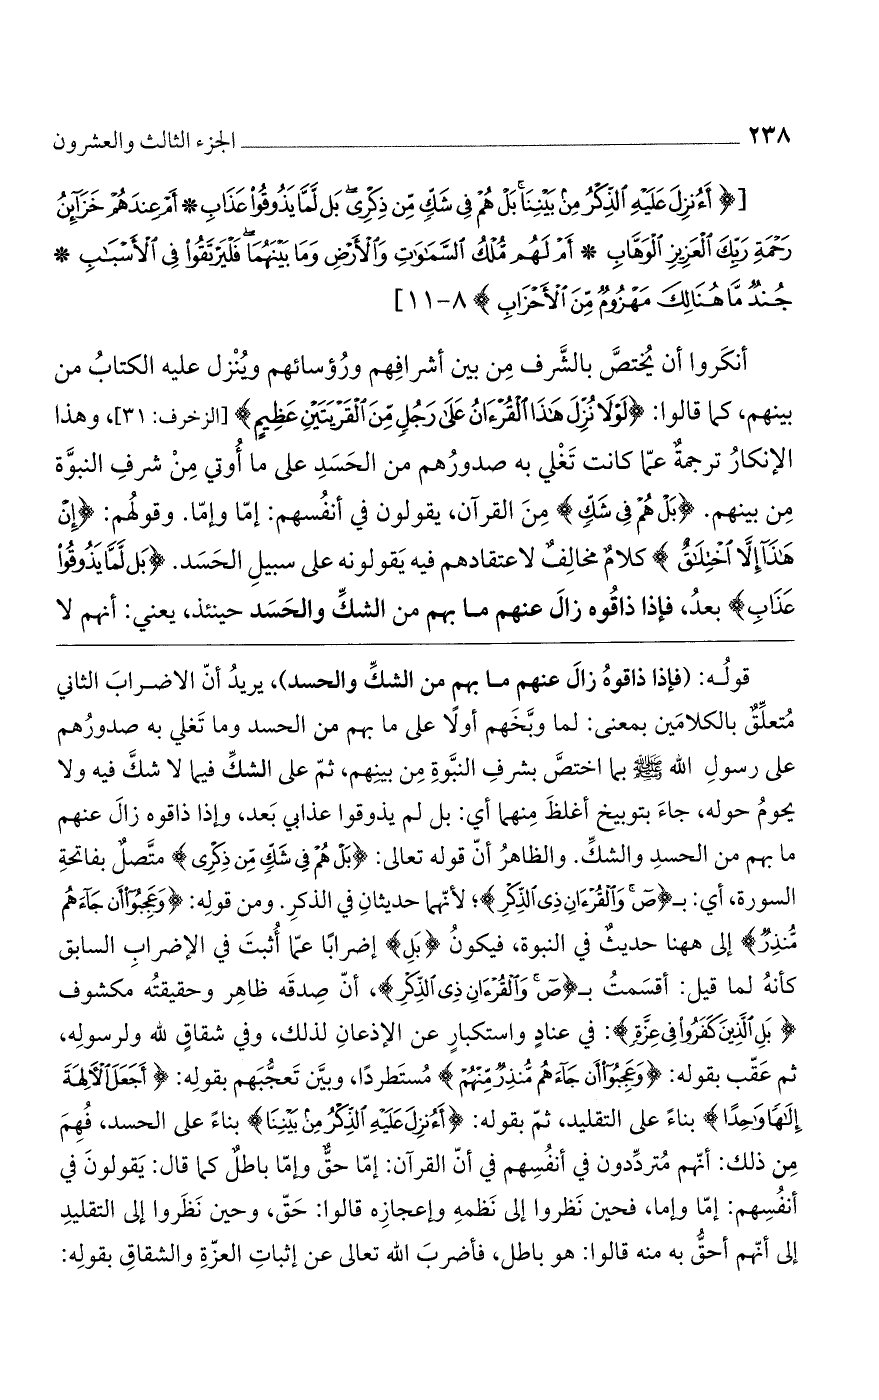 ٢٣٨ الجزء الثالث والعشرون
[﴿ أَءُنزِلَ عَلَيْهِ ٱلذِّكْرُ مِنۢ بَيْنِنَا ۚ بَلْ هُمْ فِى شَكٍّ مِّن ذِكْرِى ۖ بَل لَّمَّا يَذُوقُوا۟ عَذَابِ * أَمْ عِندَهُمْ خَزَآئِنُ
رَحْمَةِ رَبِّكَ ٱلْعَزِيزِ ٱلْوَهَّابِ * أَمْ لَهُم مُّلْكُ ٱلسَّمَٰوَٰتِ وَٱلْأَرْضِ وَمَا بَيْنَهُمَا ۖ فَلْيَرْتَقُوا۟ فِى ٱلْأَسْبَٰبِ *
جُندٌ مَّا هُنَالِكَ مَهْزُومٌ مِّنَ ٱلْأَحْزَابِ ﴾ ٨-١١]
أنكَروا أن يُختصَّ بالشَّرف مِن بين أشرافِهم ورُؤسائهم ويُنْزل عليه الكتابُ من
بينهم، كما قالوا: ﴿لَوْلَا نُزِّلَ هَٰذَا ٱلْقُرْءَانُ عَلَىٰ رَجُلٍ مِّنَ ٱلْقَرْيَتَيْنِ عَظِيمٍ﴾ [الزخرف: ٣١]، وهذا
الإنكارُ ترجمةٌ عمّا كانت تَغْلي به صدورُهم من الحَسَدِ على ما أُوتي مِنْ شرفِ النبوَّة
مِن بينهم. ﴿بَلْ هُمْ فِى شَكٍّ﴾ مِنَ القرآن، يقولون في أنفُسهم: إمّا وإمّا. وقولُهم: ﴿إِنْ
هَٰذَآ إِلَّا ٱخْتِلَٰقٌ﴾ كلامٌ مخالِفٌ لاعتقادهم فيه يَقولونه على سبيلِ الحَسَد. ﴿بَل لَّمَّا يَذُوقُوا۟
عَذَابِ﴾ بعدُ، فإذا ذاقُوه زالَ عنهم ما بهم من الشكِّ والحَسَد حينئذ، يعني: أنهم لا
قولُه: (فإذا ذاقوهُ زالَ عنهم ما بهم من الشكِّ والحسد)، يريدُ أنّ الاضرابَ الثاني
مُتعلِّقٌ بالكلامَين بمعنى: لما وبَّخَهم أولًا على ما بهم من الحسد وما تَغلي به صدورُهم
على رسولِ الله ﷺ بما اختصَّ بشرفِ النبَّوةِ مِن بينِهم، ثمّ على الشكِّ فيما لا شكَّ فيه ولا
يحومُ حوله، جاءَ بتوبيخ أغلظَ مِنهما أي: بل لم يذوقوا عذابي بَعد، وإذا ذاقوه زالَ عنهم
ما بهم من الحسدِ والشكِّ. والظاهرُ أنّ قوله تعالى: ﴿بَلْ هُمْ فِى شَكٍّ مِّن ذِكْرِى﴾ متَّصلٌ بفاتحةِ
السورة، أي: بـ﴿صٓ ۚ وَٱلْقُرْءَانِ ذِى ٱلذِّكْرِ﴾؛ لأنّهما حديثانِ في الذكرِ. ومن قولِه: ﴿وَعَجِبُوٓا۟ أَن جَآءَهُم
مُّنذِرٌ﴾ إلى ههنا حديثٌ في النبوة، فيكونُ ﴿بَلِ﴾ إضرابًا عمّا أُثبتَ في الإضرابِ السابق
كأنهُ لما قيل: أقسَمتُ بـ﴿صٓ ۚ وَٱلْقُرْءَانِ ذِى ٱلذِّكْرِ﴾، أنّ صِدقَه ظاهِر وحقيقتُه مكشوف
﴿بَلِ ٱلَّذِينَ كَفَرُوا۟ فِى عِزَّةٍ﴾: في عنادٍ واستكبارٍ عن الإذعانِ لذلك، وفي شقاقٍ لله ولرسولِه،
ثم عَقَّب بقوله: ﴿وَعَجِبُوٓا۟ أَن جَآءَهُم مُّنذِرٌ مِّنْهُمْ﴾ مُستَطردًا، وبيَّن تَعجُّبَهم بقولِه: ﴿أَجَعَلَ ٱلْءَالِهَةَ
إِلَٰهًا وَٰحِدًا﴾ بناءً على التقليد، ثمّ بقوله: ﴿أَءُنزِلَ عَلَيْهِ ٱلذِّكْرُ مِنۢ بَيْنِنَا﴾ بناءً على الحسد، فُهِمَ
مِن ذلك: أنّهم مُتردِّدون في أنفُسِهم في أنّ القرآن: إمّا حقٌّ وإمّا باطلٌ كما قال: يَقولونَ في
أنفُسِهم: إمّا وإما، فحين نَظروا إلى نَظمهِ وإعجازِه قالوا: حَقّ، وحين نَظَروا إلى التقليدِ
إلى أنّهم أحقُّ به منه قالوا: هو باطل، فأضربَ الله تعالى عن إثباتِ العزّةِ والشقاقِ بقولِه: